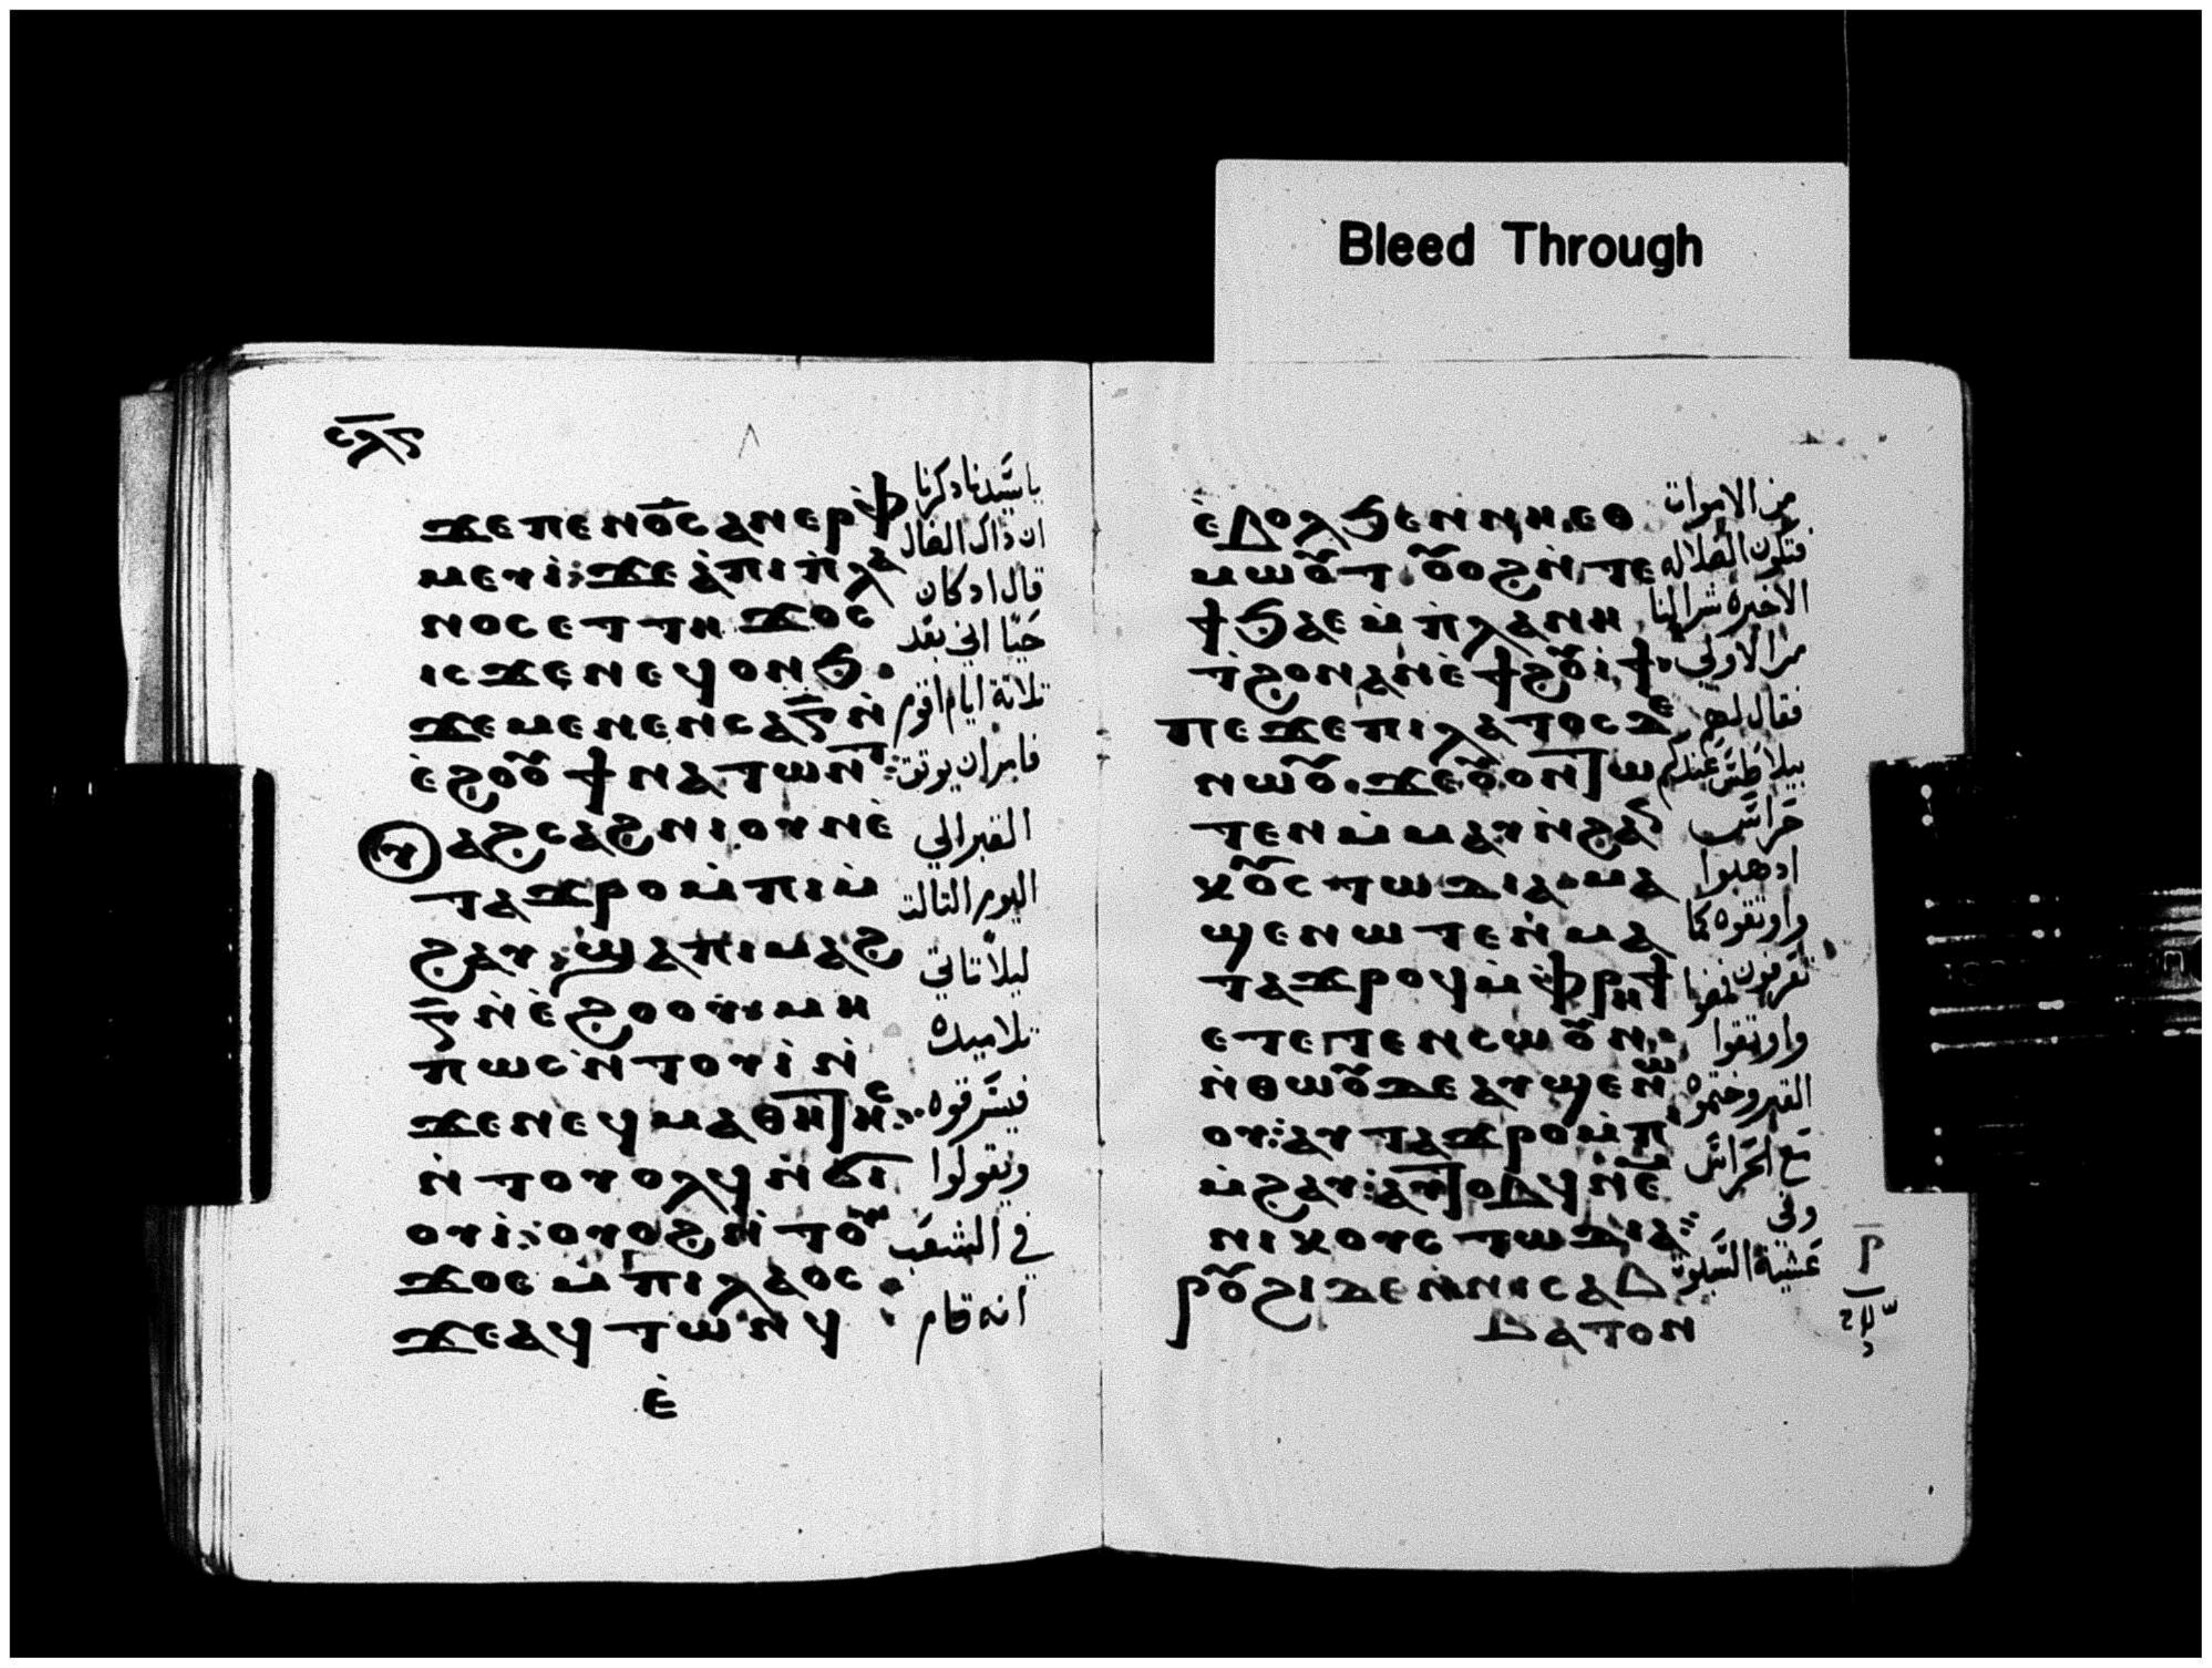 Bleed Through
ϫⲉⲡⲉⲛⲟ̅ⲥ̅ⲁⲛⲉⲣⲫ̀
ⲙⲉⲩⲓ̀: ϫⲉⲁ̀ⲡⲓⲡ̀ⲗⲁ
ⲛⲟⲥ ⲉⲧⲧⲏ ϫⲟⲥ
ⲓⲥ ϫⲉⲛⲉϥⲟⲛϧ.
ϫⲉⲙⲉⲛⲉⲛⲥⲁⲅ̅ⲛ̀
ⲉ̀ϩⲟⲟⲩ ϯⲛⲁⲧⲱⲛⲧ:
ⲁϩⲥⲁϩⲛⲓ ⲟⲩⲛⲉ̀
ⲧⲁϫⲣⲟⲙ̀ⲡⲓⲙ̀
ϩⲁⲩ: ϣⲁⲡⲓⲙⲁϩ
ⲅ̅ⲛ̀ⲉ̀ϩⲟⲟⲩ: ⲙⲏ
ⲡⲱⲥⲛ̀ⲧⲟⲩⲓ̀ ⲛ̀
ϫⲉⲛⲉϥⲙⲁⲑⲏⲧⲏⲥ:
ⲛ̀ⲧⲟⲩⲟⲗϥⲛ̀ϭⲓ
ⲟⲩⲓ̀: ⲟⲩⲟϩⲛ̀ⲧⲟⲩ
ϫⲟⲥ ⲙ̀ⲡⲓⲗⲁⲟⲥ.
ϫⲉⲁϥⲧⲱⲛϥ
ⲉ̀
ياسيدنا ذكرنا
ان ذاك الضال
قال اذ كان
حيّا اني بعد
تلاتة ايام اقوم
فامر ان يوثق
القبر الي
اليوم التالت
ليلا تاتي
تلاميده
فيسرقوه
ويقولوا
في الشعب
انه قام
ⲉ̀ⲃⲟⲗϧⲉⲛⲛⲏⲉⲑ
ⲙⲱⲟⲩⲧ. ⲟⲩⲟϩⲛ̀ⲧⲉ
ϯϧⲁⲉ ⲙ̀ⲡ̀ⲗⲁⲛⲏ
ⲧ̀ϩⲟⲛⲁⲛⲉ̀ϯϩⲟⲩⲓ̀ϯ.
ⲡⲉϫⲉⲡⲓⲗⲁⲧⲟⲥ ⲇⲉ
ⲛⲱⲟⲩ. ϫⲉⲟⲩⲟⲛⲧⲱ
ⲧⲉⲛⲙ̀ⲙⲁⲩⲛ̀ϩⲁⲛ
ⲕⲟⲩⲥⲧⲱⲇⲓⲁ. ⲙⲁ
ϣⲉⲛⲱⲧⲉⲛ̀ ⲙⲁ
ⲧⲁϫⲣⲟϥⲙ̀ⲫ̀ⲣⲏϯ
ⲉⲧⲉⲧⲉⲛⲥⲱⲟⲩⲛ:
ⲛ̀ⲑⲱⲟⲩⲇⲉⲁⲩϣⲉⲛⲱ
ⲟⲩ: ⲁⲩⲧⲁϫⲣⲟⲙ̀ⲡⲓ
ⲙ̀ϩⲁⲩ: ⲁⲩⲧⲟⲃϥⲛⲉⲙ
ⲛⲓⲕⲟⲩⲥⲧⲱⲇⲓⲁ:
ⲣⲟⲩϩⲓ ⲇⲉ ⲛ̀ⲛⲓⲥⲁⲃ
ⲃⲁⲧⲟⲛ
من الاموات
فتكون الضلاله
الاخيره شرا لنا
من الاولي
فقال لهم
بيلاطس عندكم
حراس
ادهبوا
واوتقوه كما
تعرفون فمضوا
واوتقوا
القبر وختموه
مع الحراس
وفي
عشية السبوت